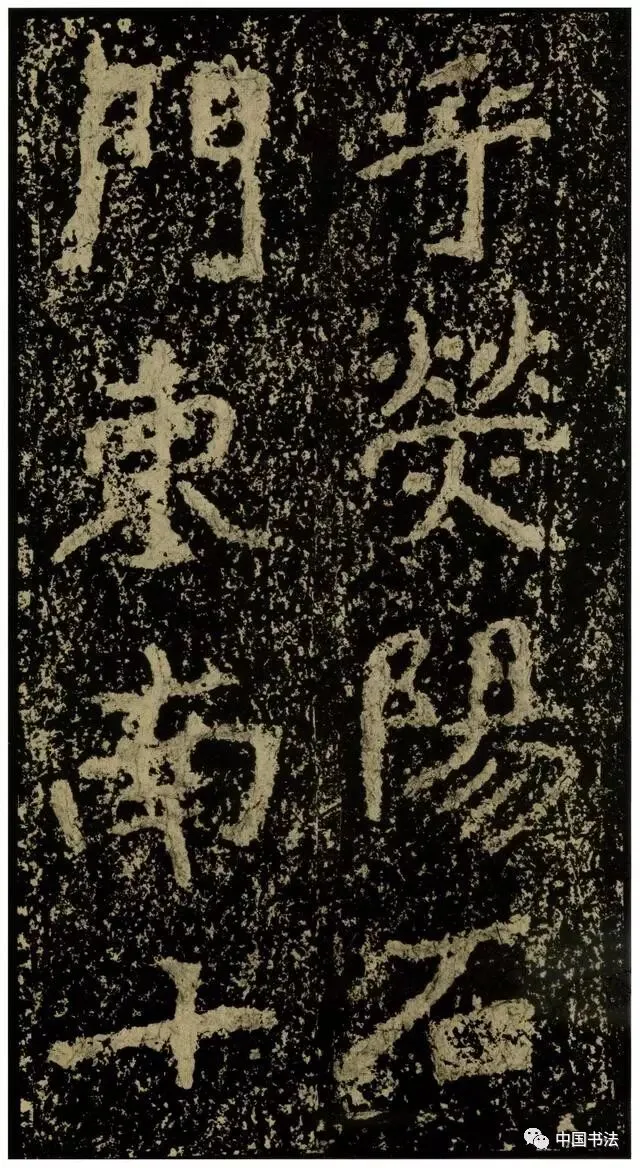 乎熒陽石
門東南十
中国书法